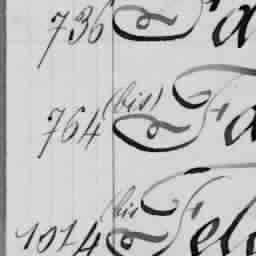 736 Fa
764 (bis) Fa
1014 (bis Fel